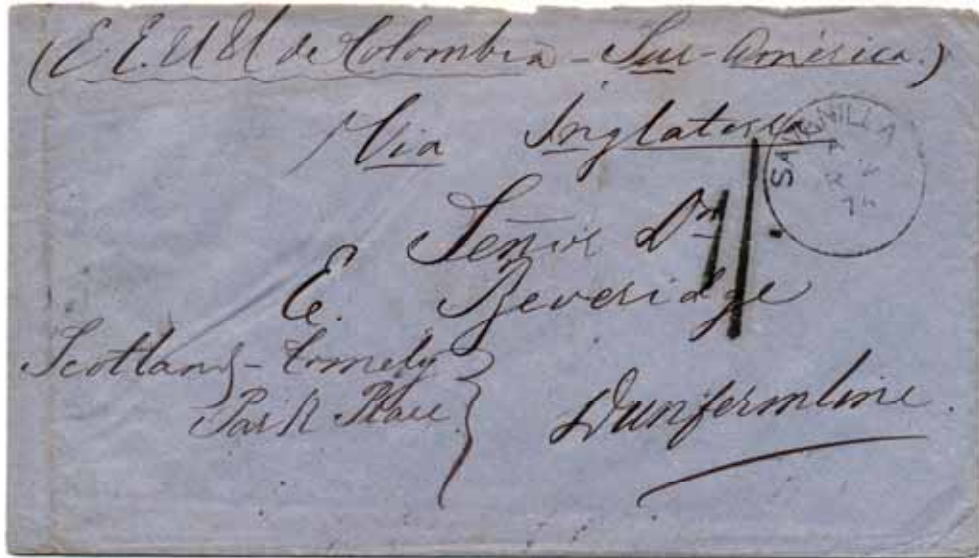 (E.E.U.U de Colombia - Sur-América.)
Via Inglaterra
SAVANILLA
Señor Dn
E. Beveridge
Scotland - Comely
Park Place
Dunfermline.